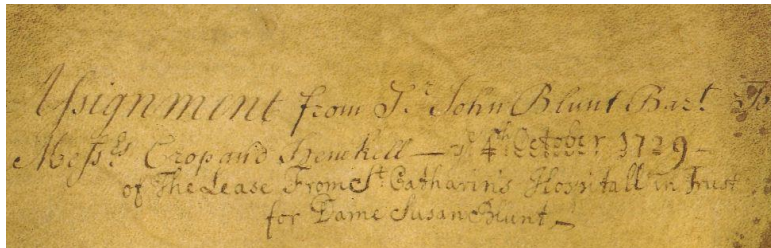 Assignment from Sr. John Blunt Bart. To
Messrs Crop and Henckell — ye 4th October 1729 —
of The Lease From St. Catharin's Hospitall in Trust
for Dame Susan Blunt —